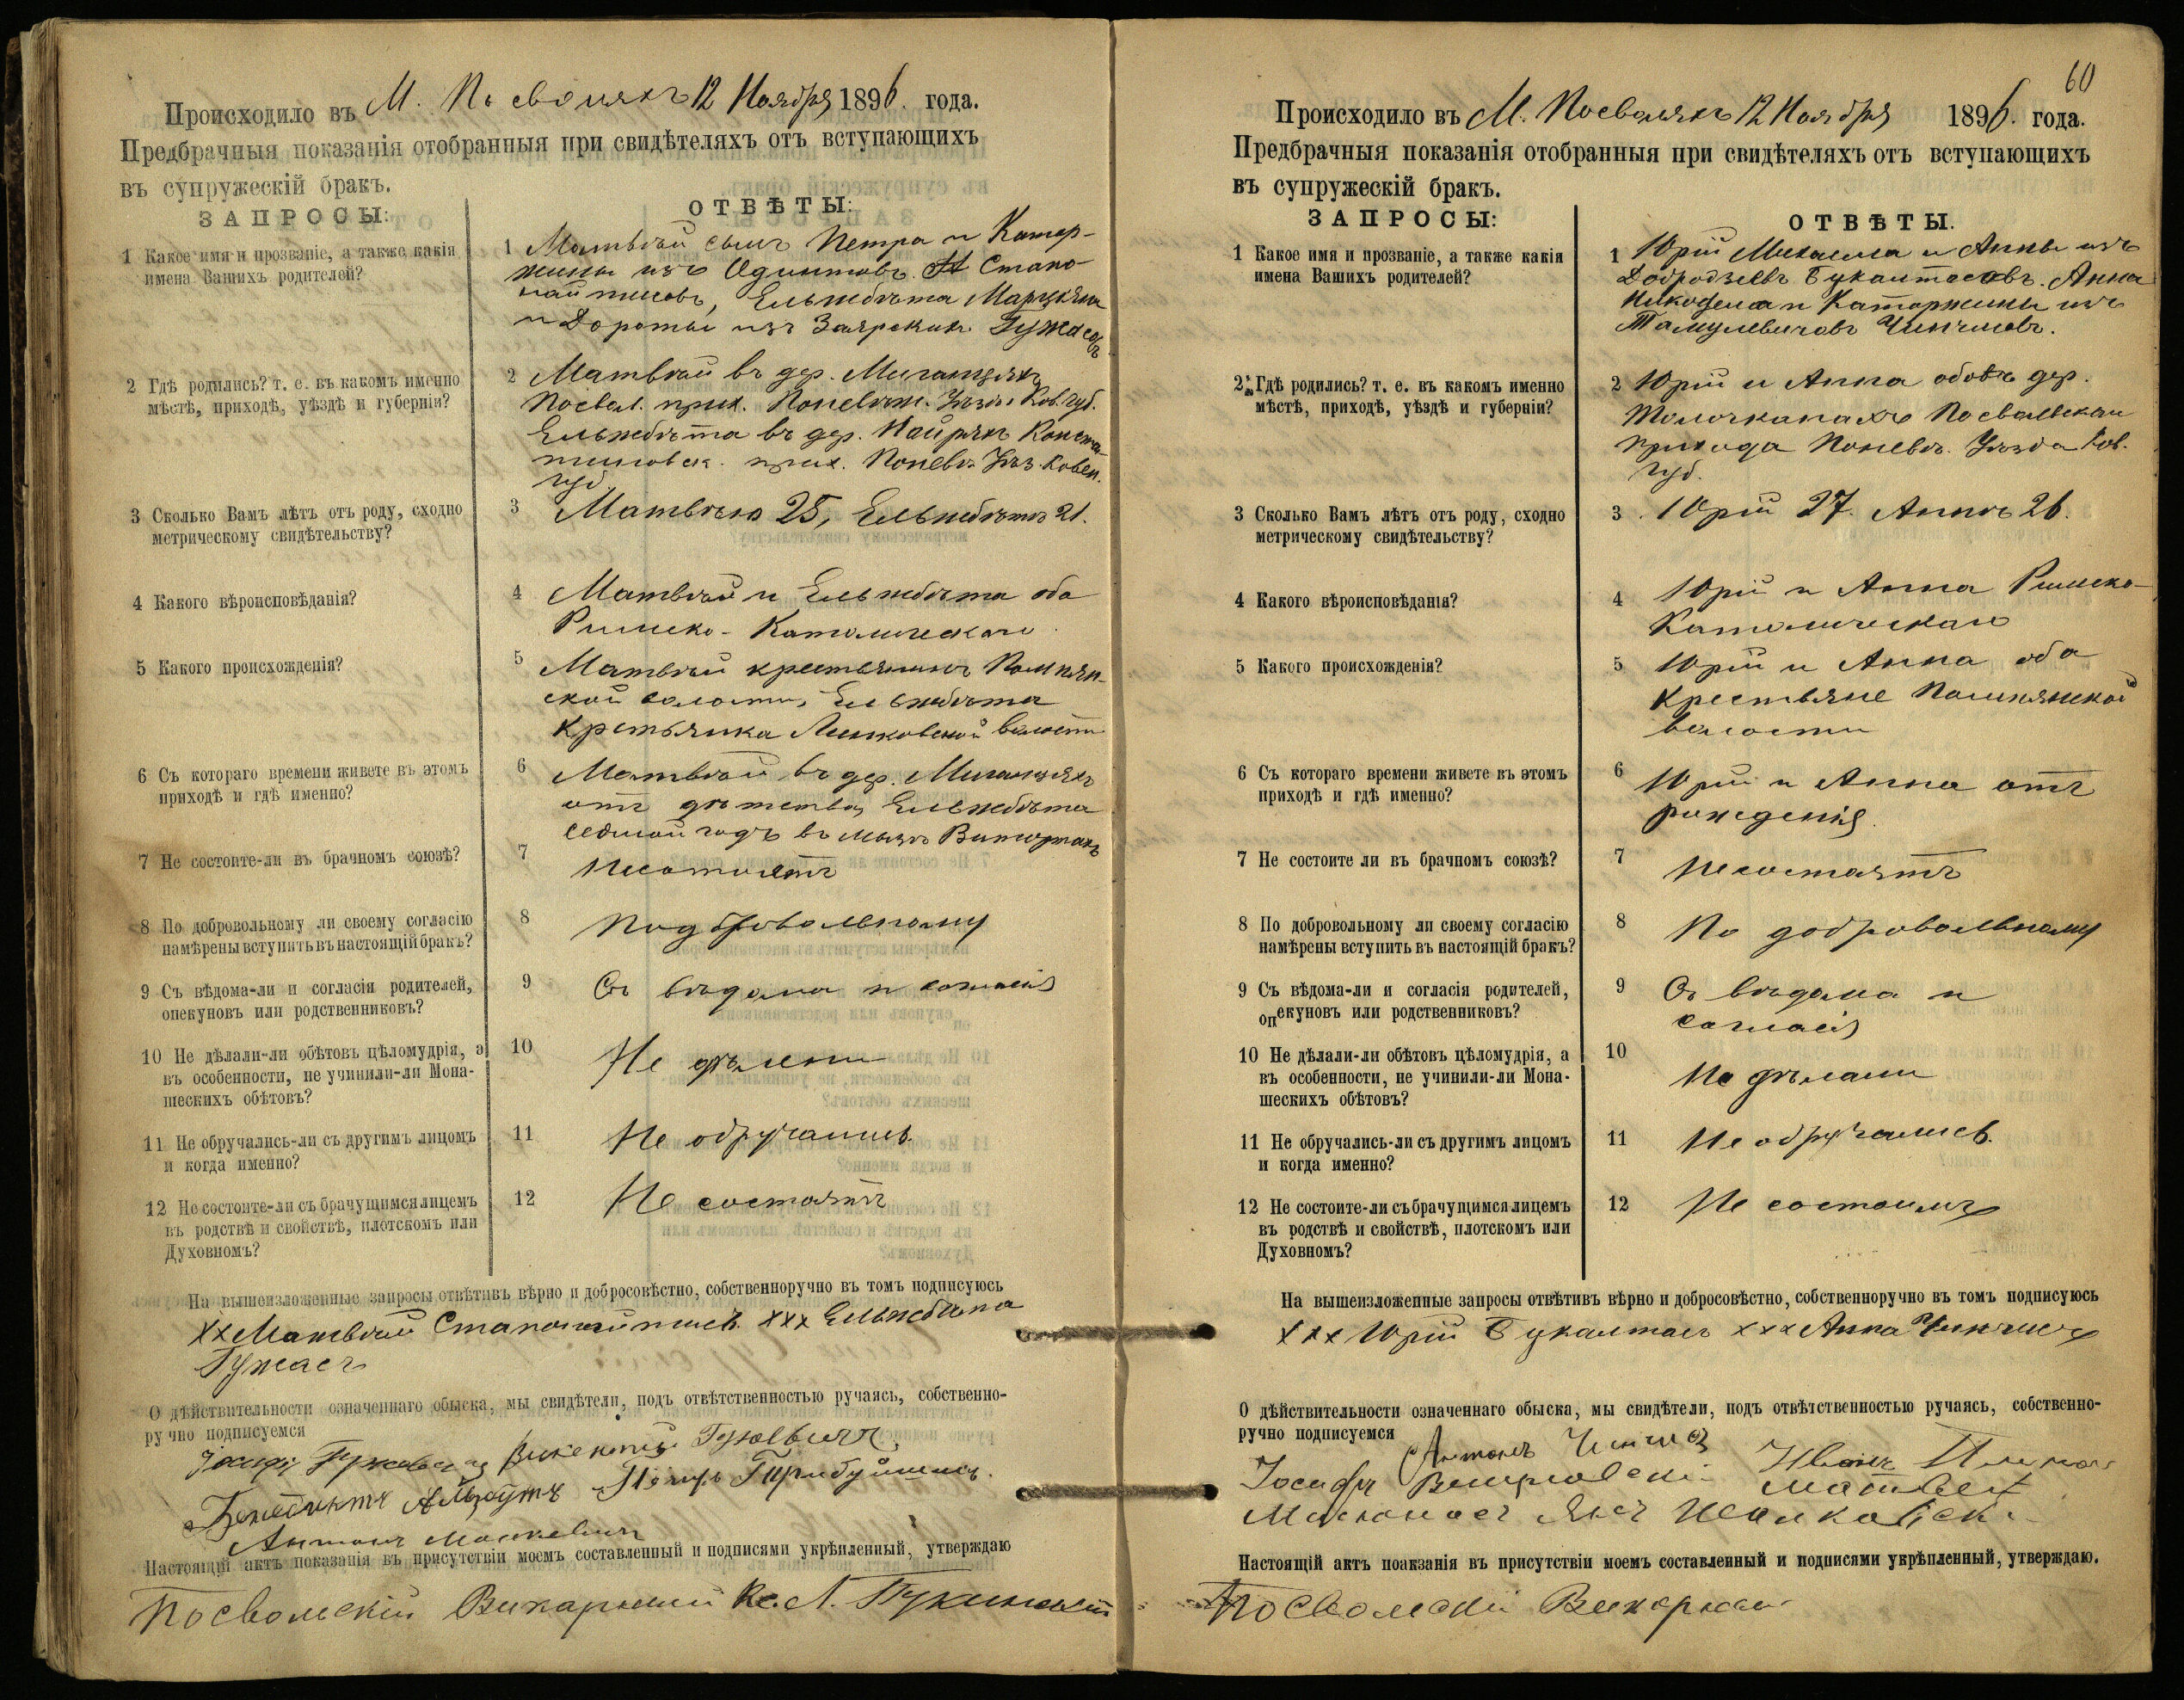 Происходило въ М. Посволяхъ 12 Ноября 1896. года.
Предбрачныя показанія отобранныя при свидѣтеляхъ отъ вступающихъ
въ супружескій бракъ.
ЗАПРОСЫ:
ОТВѢТЫ:
1 Какое имя и прозваніе, а также какія
имена Вашихъ родителей?
1 Матвѣй сынъ Петра и Катер-
жины изъ Одинтовъ Стано-
Ельжбѣта Марцѣяна
и Дороты изъ Заярскихъ Гужасовъ
2 Гдѣ родились? т. е. въ какомъ именно
мѣстѣ, приходѣ, уѣздѣ и губерніи?
2 Матвѣй въ дер. Миганцяхъ
Посвол. прих. Поневѣж. Уѣзда Ков. губ.
Ельжбѣта въ дер. Найряхъ Конста-
тиновск. прих. Поневѣ. Уѣз. Ковен.
губ.
3 Сколько Вамъ лѣтъ отъ роду, сходно
метрическому свидѣтельству?
3 Матвѣю 25, Ельжбѣтѣ 21.
4 Какого вѣроисповѣданія?
4 Матвѣй и Ельжбѣта оба
Римско-Католическаго
5 Какого происхожденія?
5 Матвѣй крестьянинъ Помпян-
ской волости, Ельжбѣта
Крстьянка Линковской волости
6 Съ котораго времени живете въ этомъ
приходѣ и гдѣ именно?
6 Матвѣй въ дер. Миганцяхъ
отъ дѣтства, Ельжбѣта
седмой годъ въ
7 Не состоите-ли въ брачномъ союзѣ?
7 Несостоятъ
8 По добровольному ли своему согласію
намѣрены вступить въ настоящій бракъ?
8 По добровольному
9 Съ вѣдома-ли и согласія родителей,
опекуновъ или родственниковъ?
9 Съ вѣдома и согласія
10 Не дѣлали-ли обѣтовъ цѣломудрія, а
въ особенности, не учинили-ли Мона-
шескихъ обѣтовъ?
10 Не дѣлали
11 Не обручались-ли съ другимъ лицомъ
и когда именно?
11 Не обручались
12 Не состоите-ли съ брачущимся лицемъ
въ родствѣ и свойствѣ, плотскомъ или
Духовномъ?
12 Не состоятъ
На вышеизложенные запросы отвѣтивъ вѣрно и добросовѣстно, собственноручно въ томъ подписуюсь
ххМатвѣй ххх Ельжбѣта
Гужасъ
О дѣйствительности означеннаго обыска, мы свидѣтели, подъ отвѣтственностью ручаясь, собственно-
ручно подписуемся
Викентій
Бенедиктъ
Антонъ Моцкевичъ
Настоящій актъ показанія въ присутствіи моемъ составленный и подписями укрѣпленный, утверждаю
Посвольскій Викарный Кс. Л.
60
Происходило въ М. Посволяхъ 12 Ноября 1896. года.
Предбрачныя показанія отобранныя при свидѣтеляхъ отъ вступающихъ
въ супружескій бракъ.
ЗАПРОСЫ:
ОТВѢТЫ.
1 Какое имя и прозваніе, а также какія
имена Вашихъ родителей?
1 Юрій Михаила и Анны изъ
Букантасовъ. Анна
Никодема и Катаржины изъ
Тамулевичовъ Чинчисовъ.
2 Гдѣ родились? т. е. въ какомъ именно
мѣстѣ, приходѣ, уѣздѣ и губерніи?
2 Юрій и Анна обоѣ дер.
Толочканахъ Посвольскаго
прихода Поневѣ. Уѣзда Ков.
губ.
3 Сколько Вамъ лѣтъ отъ роду, сходно
метрическому свидѣтельству?
3 Юрій 27. Аннѣ 26.
4 Какого вѣроисповѣданія?
4 Юрій и Анна Римско-
Католическаго
5 Какого происхожденія?
5 Юрій и Анна оба
крестьяне Помпянской
волости
6 Съ котораго времени живете въ этомъ
приходѣ и гдѣ именно?
6 Юрій и Анна отъ
рожденія.
7 Не состоите ли въ брачномъ союзѣ?
7 Несостоятъ
8 По добровольному ли своему согласію
намѣрены вступить въ настоящій бракъ?
8 По добровольному
9 Съ вѣдома-ли и согласія родителей,
опекуновъ или родственниковъ?
9 Съ вѣдома и
согласія
10 Не дѣлали-ли обѣтовъ цѣломудрія, а
въ особенности, не учинили-ли Мона-
шескихъ обѣтовъ?
10 Не дѣлали
11 Не обручались-ли съ другимъ лицомъ
и когда именно?
11 Не обручались.
12 Не состоите-ли съ брачущимся лицемъ
въ родствѣ и свойствѣ, плотскомъ или
Духовномъ?
12 Не состоимъ
На вышеизложенные запросы отвѣтивъ вѣрно и добросовѣстно, собственноручно въ томъ подписуюсь
ххх Юрій Букантасъ ххх Анна Чинчисъ
О дѣйствительности означеннаго обыска, мы свидѣтели, подъ отвѣтственностью ручаясь, собственно-
ручно подписуемся
Антонъ Чинчисъ
Іосифъ Иванъ
Матвей
Янъ
Настоящій актъ поаказанія въ присутствіи моемъ составленный и подписями укрѣпленный, утверждаю.
Посвольскій Викарный